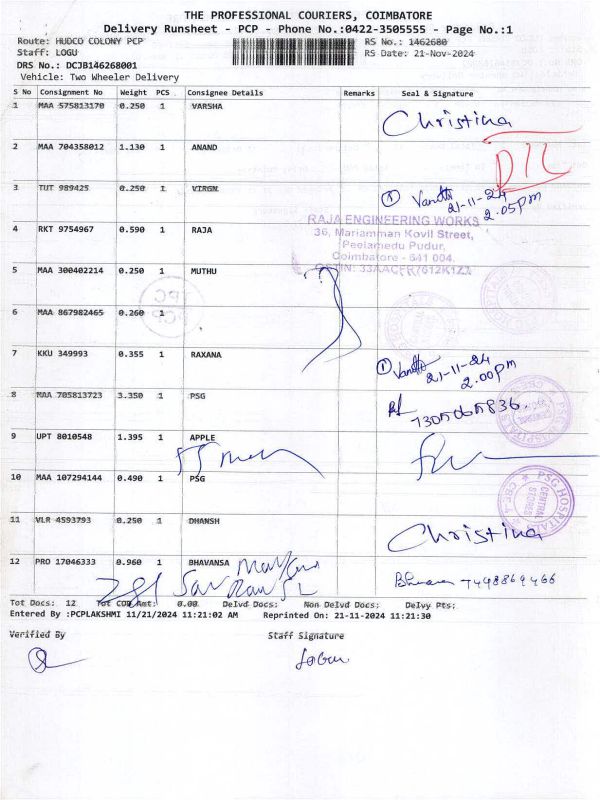 THE PROFESSIONAL COURIERS, COIMBATORE
Delivery Runsheet - PCP - Phone No.:0422-3505555 - Page No.:1
Route: HUDCO COLONY PCP RS No.: 1462680
Staff: LOGU RS Date: 21-Nov-2024
DRS No.: DCJB146268001
Vehicle: Two Wheeler Delivery
S No Consignment No Weight PCS Consignee Details Remarks Seal & Signature
1 MAA 575813170 0.250 1 VARSHA
Christina
2 MAA 704358012 1.130 1 ANAND
3 TUT 989425 0.250 1 VIRGN
21-11-24
2.05pm
RAJA ENGINEERING WORKS
36, Mariamman Kovil Street,
4 RKT 9754967 0.590 1 RAJA
Peelamedu Pudur,
Coimbatore - 641 004.
GSTIN: 33AACFR7612K1ZA
5 MAA 300402214 0.250 1 MUTHU
PCP
6 MAA 867982465 0.260 1
7 KKU 349993 0.355 1 RAXANA
21-11-24
2.00pm
8 MAA 705813723 3.350 1 PSG
7305065836
9 UPT 8010548 1.395 1 APPLE
10 MAA 107294144 0.490 1 PSG
PSG HOSPITALS
CENTRAL STORES
CBE-4
11 VLR 4593793 0.250 1 DHANSH
Christina
12 PRO 17046333 0.960 1 BHAVANSA
7498869466
Tot Docs: 12 Tot COD Amt: 0.00 Delvd Docs: Non Delvd Docs: Delvy Pts:
Entered By :PCPLAKSHMI 11/21/2024 11:21:02 AM Reprinted On: 21-11-2024 11:21:30
Verified By Staff Signature